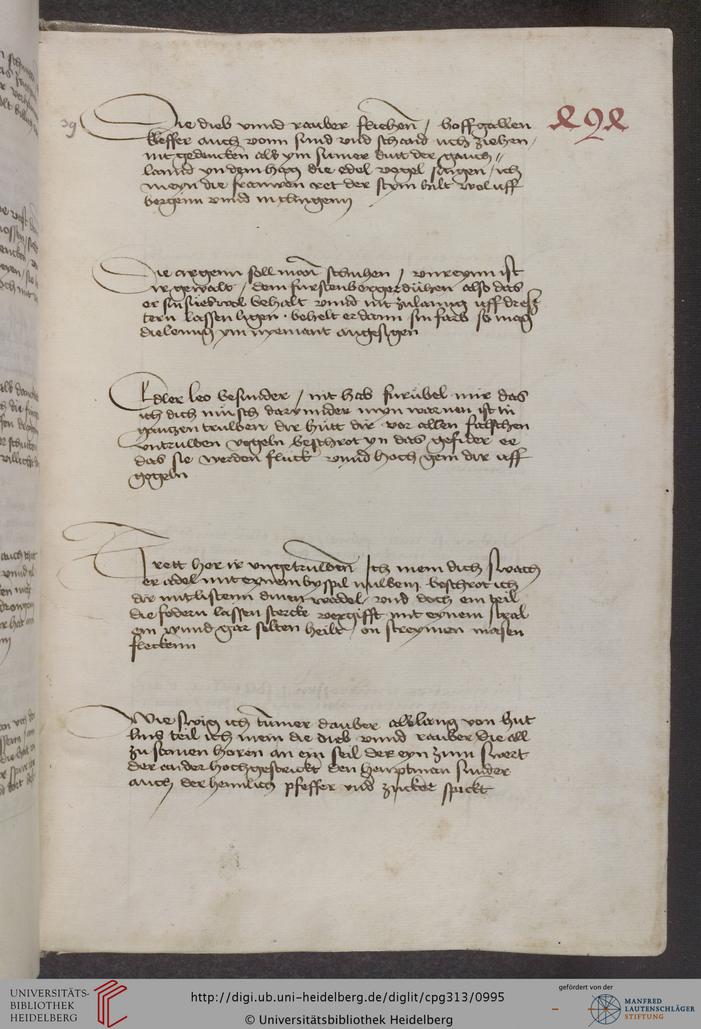 39
Die dieb vnnd rauber fliehenn / hoff gallen
kleffer auch vonn sund vnd schand uch ziehen /
nit gedencken als ym sumer dutt der gauch
lannd yn dem hag die edel vogel singen / ich
meyn die frauwen ret der stym hilt wol uff
bergenn vnnd in clingenn
Die argenn soll man schuhen / vnreynn ist
ir gewalt / dem fursten
er sin behalt vnnd nit zulanng uff
tern lassen ligen · behelt er dann sin farb so mag
die lenng ym nyemant angesigen
Edler leo besunder / nit hab fur ubel mir das
ich dich warnen ist in
gantzen truwen dir hutt dir vor allen falschen
vntruwen vogeln beschrot yn das gefider ee
das sie werden fluck vnnd hoch gein dir uff
gogeln
Trett her ir vngetruwen Ich mein dich swach
er adel mit eynem byspil beschrot ich
dir mit listenn dinen wadel / vnd doch ein teil
die federn lassen stercke vergifft mit eynem stral
ein wund gar selten heilt / on streymen masen
fleckenn
Wie swig ich tumer dauber als lang von hut
teil ich mein die dieb vnnd rauber die all
zu samen horen an ein seil der eyn zum swert
der ander hochgestrickt den heuptman sunder
auch der heimlich pfeffer vnd zucker spickt
UNIVERSITÄTS-
BIBLIOTHEK
HEIDELBERG
http://digi.ub.uni-heidelberg.de/diglit/cpg313/0995
© Universitätsbibliothek Heidelberg
gefördert von der
MANFRED
LAUTENSCHLÄGER
STIFTUNG